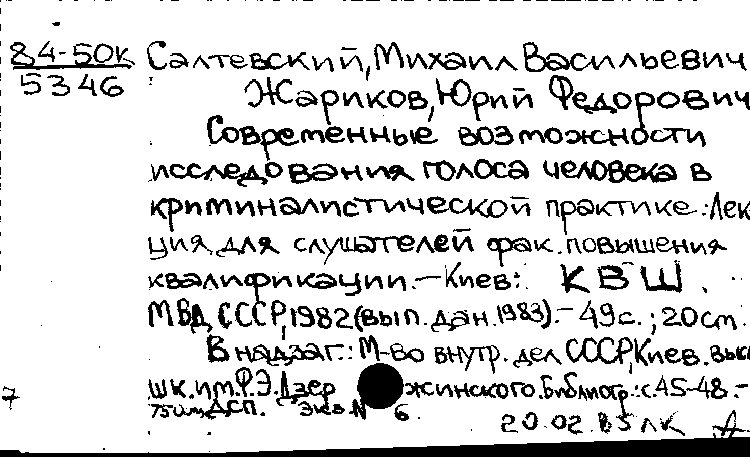 84-50К Салтевский, Михаил Васильевич
5346 Жариков, Юрий Федорович
Современные возможности
исследования голоса человека в
криминалистической практике: Лек
ция для слушателей фак. повышения
квалификации. — Киев: КВШ
МВД СССР, 1982 (вып. дан. 1983). — 49с.; 20см.
В надзаг.: М-во внутр. дел СССР, Киев. высш
шк. им. Ф.Э. Дзержинского. Библиогр.: с. 45-48. —
750 экз. ДСП. Экз. N 6.
20.02.85 ЛК